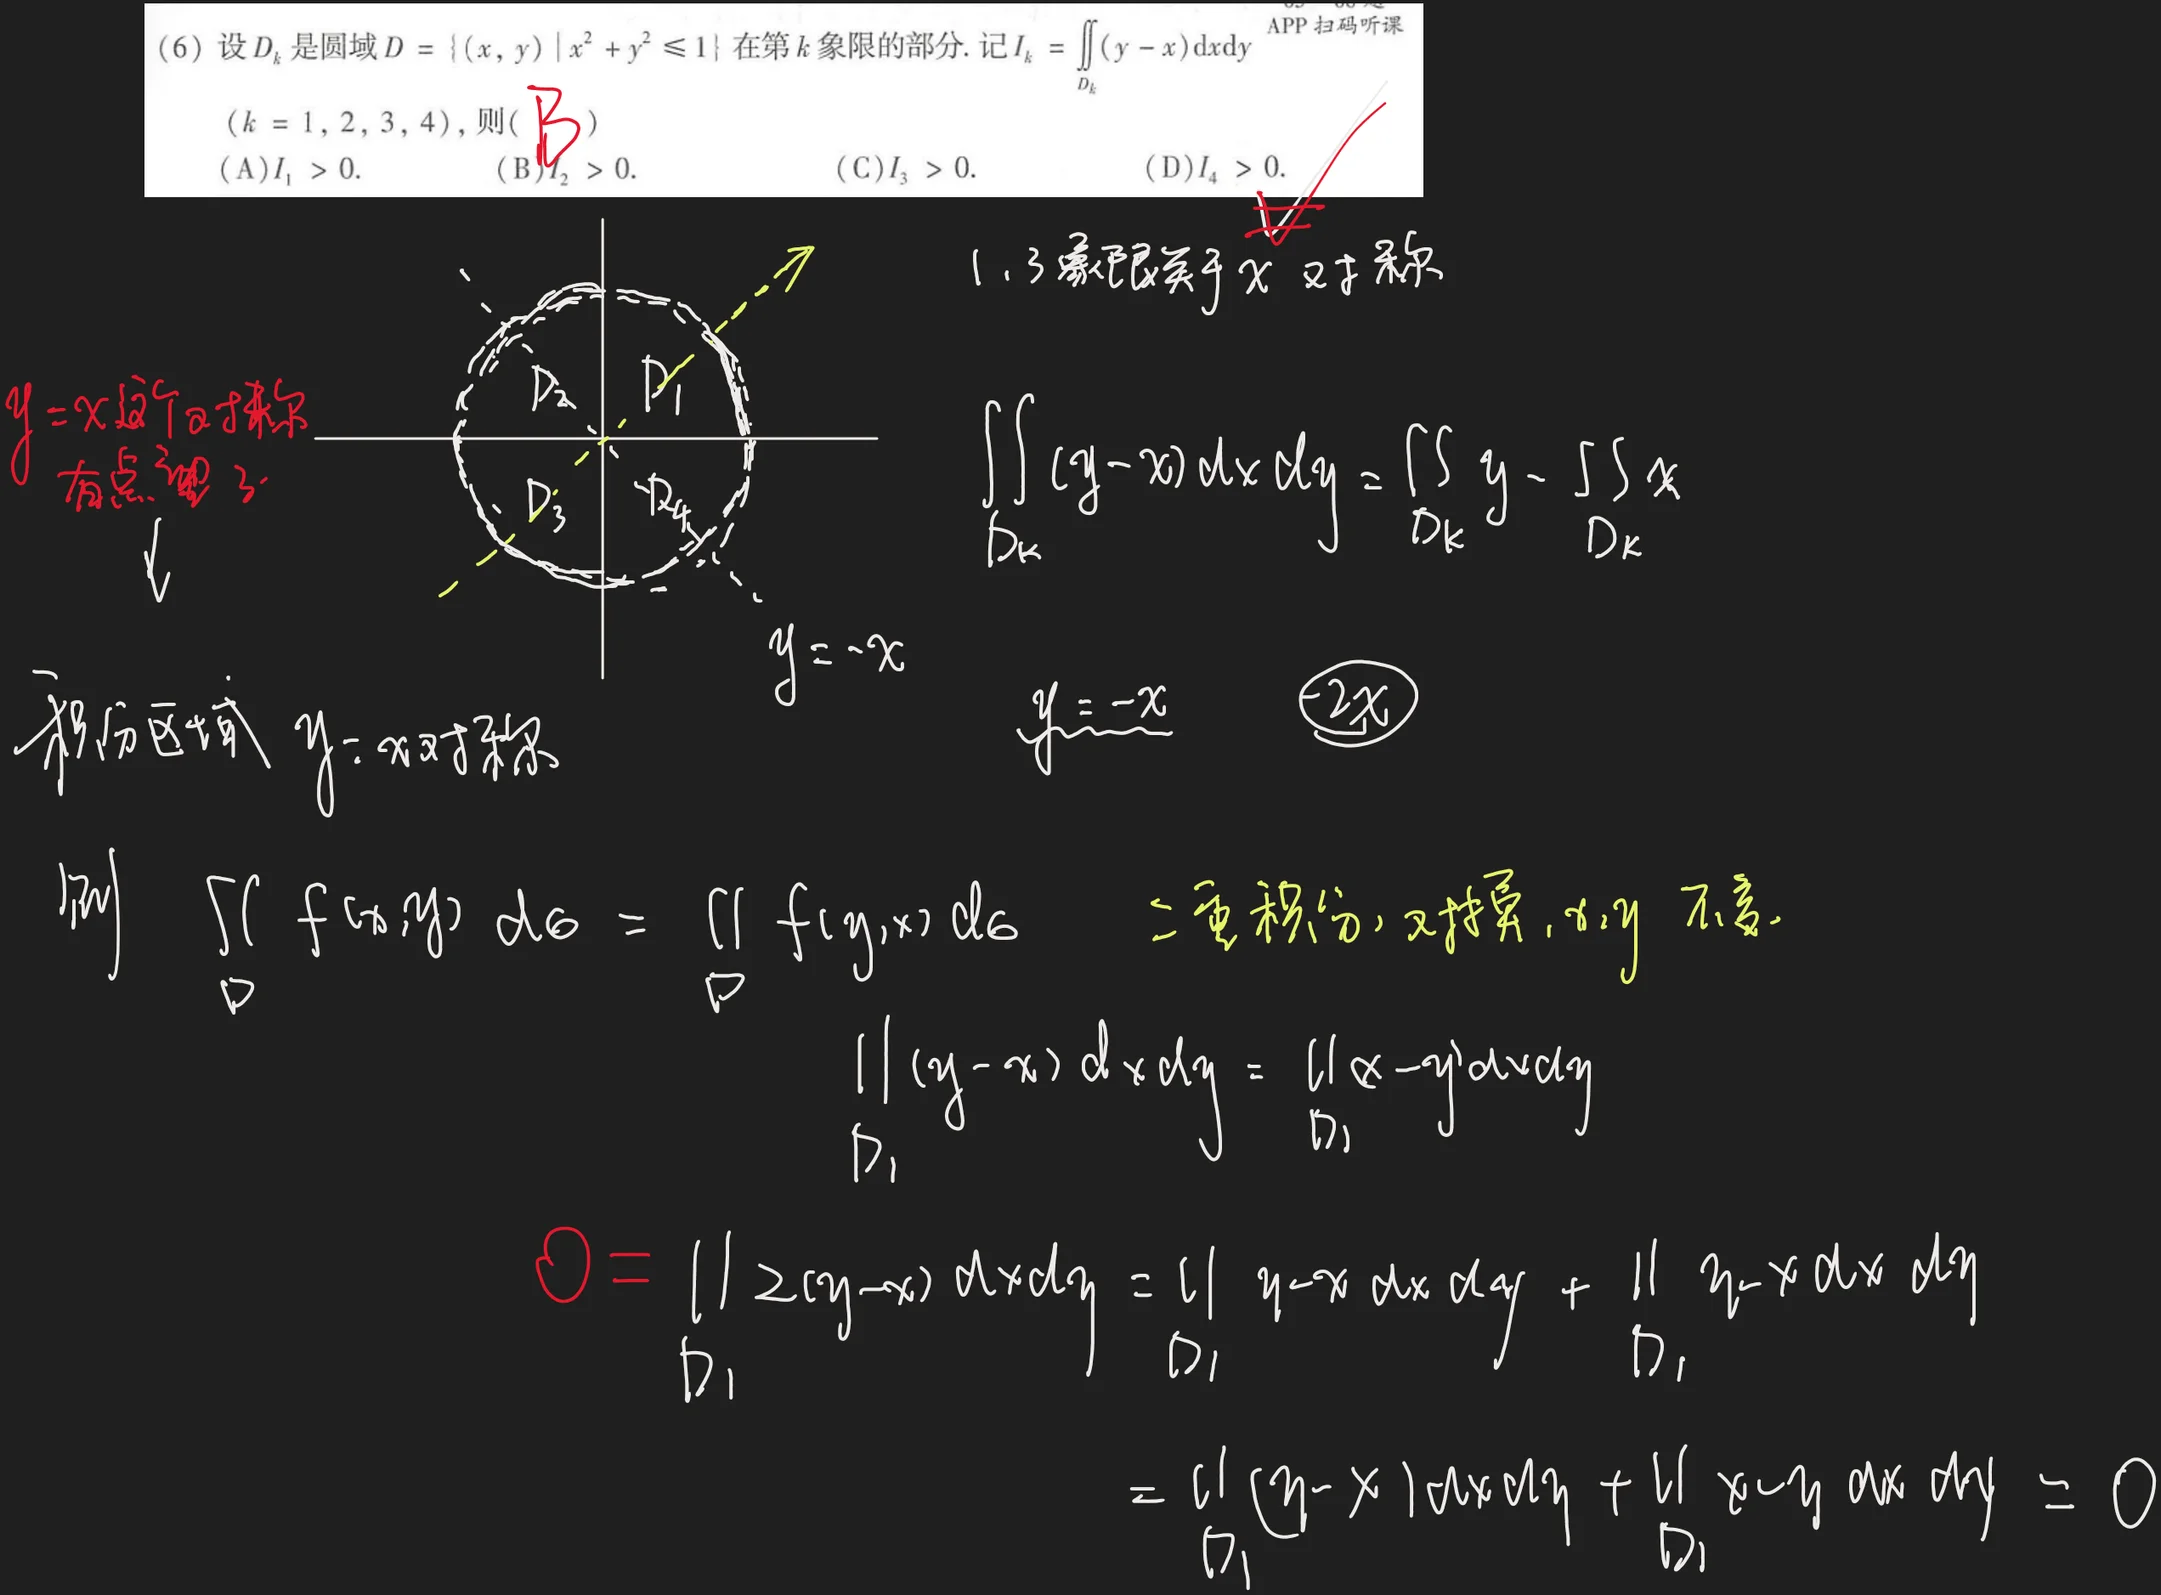 APP 扫码听课
(6) 设 D_k 是圆域 D = {(x, y) | x² + y² ≤ 1} 在第 k 象限的部分. 记 I_k = ∬_{D_k} (y − x)dxdy
(k = 1, 2, 3, 4), 则( B )
(A) I₁ > 0. (B) I₂ > 0. (C) I₃ > 0. (D) I₄ > 0.
1.3象限关于x对称
D₂ D₁
D₃ D₄
y=x这个对称
有点忘了
y=-x
∬_{Dk} (y-x)dxdy = ∬_{Dk} y - ∬_{Dk} x
y=-x -2x
积分区域 y=x对称
则 ∬_D f(x,y) dσ = ∬_D f(y,x) dσ 二重积分,对换,x,y 不变.
∬_{D₁} (y-x) dxdy = ∬_{D₁} (x-y)dxdy
0 = ∬_{D₁} 2(y-x) dxdy = ∬_{D₁} y-x dx dy + ∬_{D₁} y-x dx dy
= ∬_{D₁} (y-x)dxdy + ∬_{D₁} x-y dx dy = 0